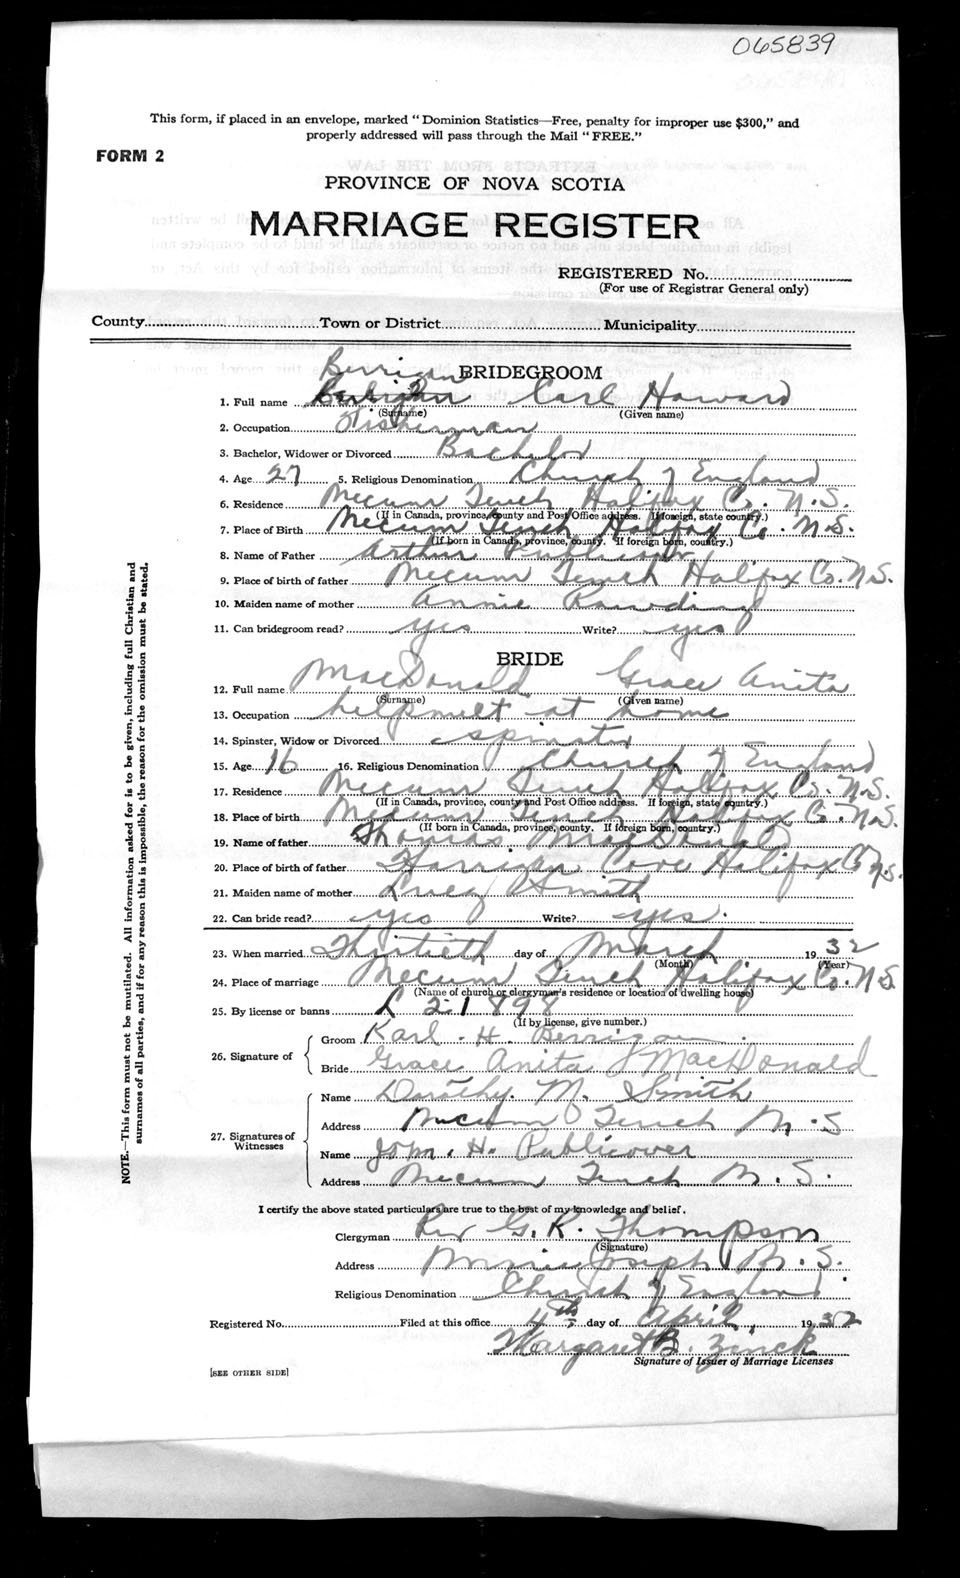 065839
This form, if placed in an envelope, marked "Dominion Statistics—Free, penalty for improper use $300," and
properly addressed will pass through the Mail "FREE."
FORM 2
PROVINCE OF NOVA SCOTIA
MARRIAGE REGISTER
REGISTERED No.
(For use of Registrar General only)
County Town or District Municipality
BRIDEGROOM
Berrigan
1. Full name Carl Howard
(Surname) (Given name)
2. Occupation Fisherman
3. Bachelor, Widower or Divorced Bachelor
4. Age 27 5. Religious Denomination Church of England
6. Residence Necum Teuch Halifax Co. N.S.
(If in Canada, province, county and Post Office address. If foreign, state country.)
7. Place of Birth Necum Teuch Halifax Co. N.S.
(If born in Canada, province, county. If foreign born, country.)
8. Name of Father Arthur Publicover
9. Place of birth of father Necum Teuch Halifax Co. N.S.
10. Maiden name of mother Annie Rawding
11. Can bridegroom read? yes Write? yes
BRIDE
12. Full name MacDonald Grace Anita
(Surname) (Given name)
13. Occupation helpmeet at home
14. Spinster, Widow or Divorced spinster
15. Age 16 16. Religious Denomination Church of England
17. Residence Necum Teuch Halifax Co. N.S.
(If in Canada, province, county and Post Office address. If foreign, state country.)
18. Place of birth Necum Teuch Halifax Co. N.S.
(If born in Canada, province, county. If foreign born, country.)
19. Name of father Thomas MacDonald
20. Place of birth of father Harrigan Cove Halifax Co N.S.
21. Maiden name of mother Lucy Smith
22. Can bride read? yes Write? yes.
23. When married Thirtieth day of March 1932
(Month) (Year)
24. Place of marriage Necum Teuch Halifax Co. N.S
(Name of church or clergyman's residence or location of dwelling house)
25. By license or banns L 21898
(If by license, give number.)
26. Signature of
Groom Karl. H. Berrigan
Bride Grace Anita J MacDonald
27. Signatures of Witnesses
Name Dorothy. M. Smith
Address Necum Teuch N.S
Name John. H. Publicover
Address Necum Teuch N.S.
I certify the above stated particulars are true to the best of my knowledge and belief.
Clergyman Rev G. R. Thompson
(Signature)
Address Marie Joseph N.S.
Religious Denomination Church of England
Registered No. Filed at this office 4th day of April, 1932
Margaret B. Zinck
Signature of Issuer of Marriage Licenses
[SEE OTHER SIDE]
NOTE.—This form must not be mutilated. All information asked for is to be given, including full Christian and
surnames of all parties, and if for any reason this is impossible, the reason for the omission must be stated.